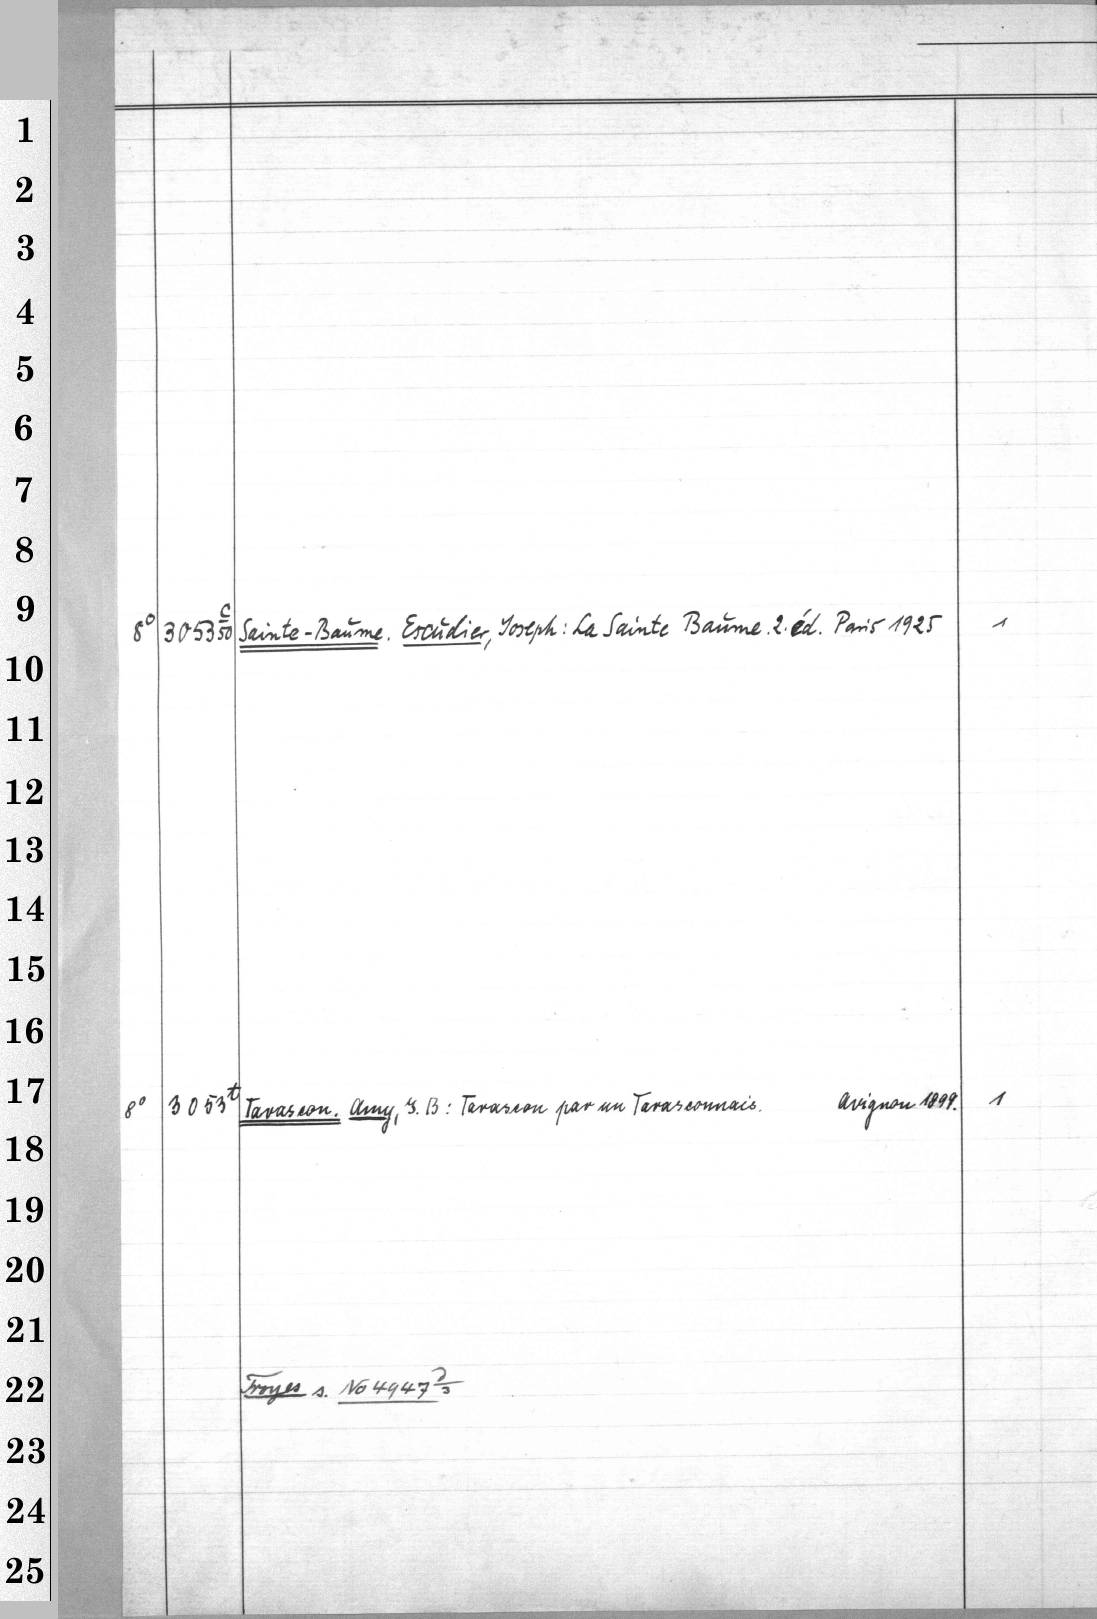 1
2
3
4
5
6
7
8
9
8° 3053 c/50 Sainte-Baŭme. Escŭdier, Joseph: La Sainte Baŭme. 2. éd. Paris 1925 1
10
11
12
13
14
15
16
17
8° 3053t Tarascon. Amy, G. B: Tarascon par un Tarasconnais. Avignon 1899. 1
18
19
20
21
22
Troyes s. No 4947
23
24
25